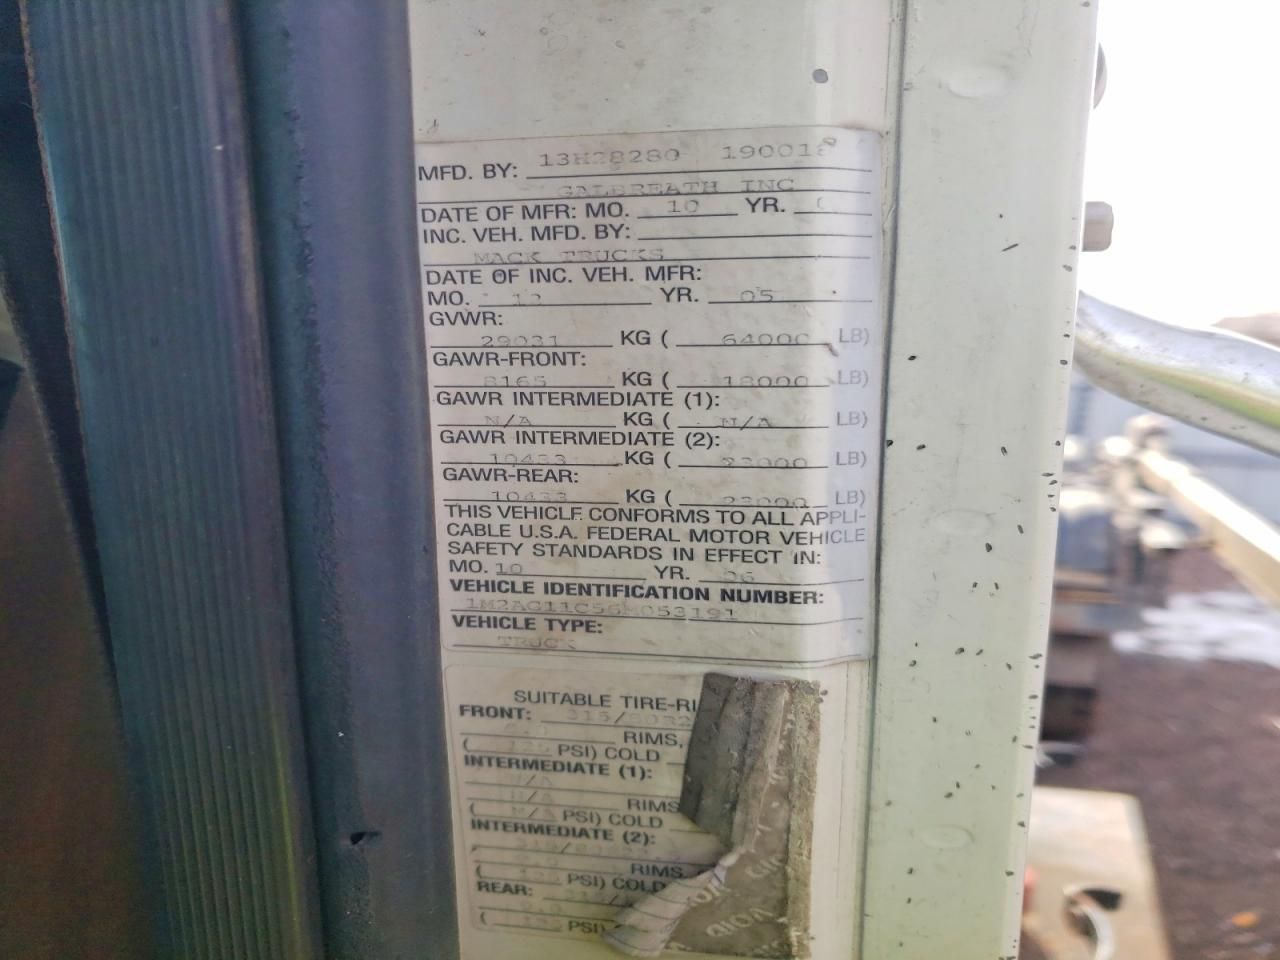 MFD. BY: 13H28280 190018
GALBREATH INC
DATE OF MFR: MO. 10 YR.
INC. VEH. MFD. BY:
MACK TRUCKS
DATE OF INC. VEH. MFR:
MO. 12 YR. 05
GVWR:
29031 KG ( 64000 LB)
GAWR-FRONT:
8165 KG ( 18000 LB)
GAWR INTERMEDIATE (1):
N/A KG ( N/A LB)
GAWR INTERMEDIATE (2):
10433 KG ( 23000 LB)
GAWR-REAR:
10433 KG ( 23000 LB)
THIS VEHICLE CONFORMS TO ALL APPLI-
CABLE U.S.A. FEDERAL MOTOR VEHICLE
SAFETY STANDARDS IN EFFECT IN:
MO. 10 YR. 06
VEHICLE IDENTIFICATION NUMBER:
1M2AG11C56M053191
VEHICLE TYPE:
TRUCK
SUITABLE TIRE-RI
FRONT: 315/80R2
RIMS,
( PSI) COLD
INTERMEDIATE (1):
N/A
N/A RIMS
( N/A PSI) COLD
INTERMEDIATE (2):
RIMS,
( PSI) COLD
REAR:
( PSI)
VOID